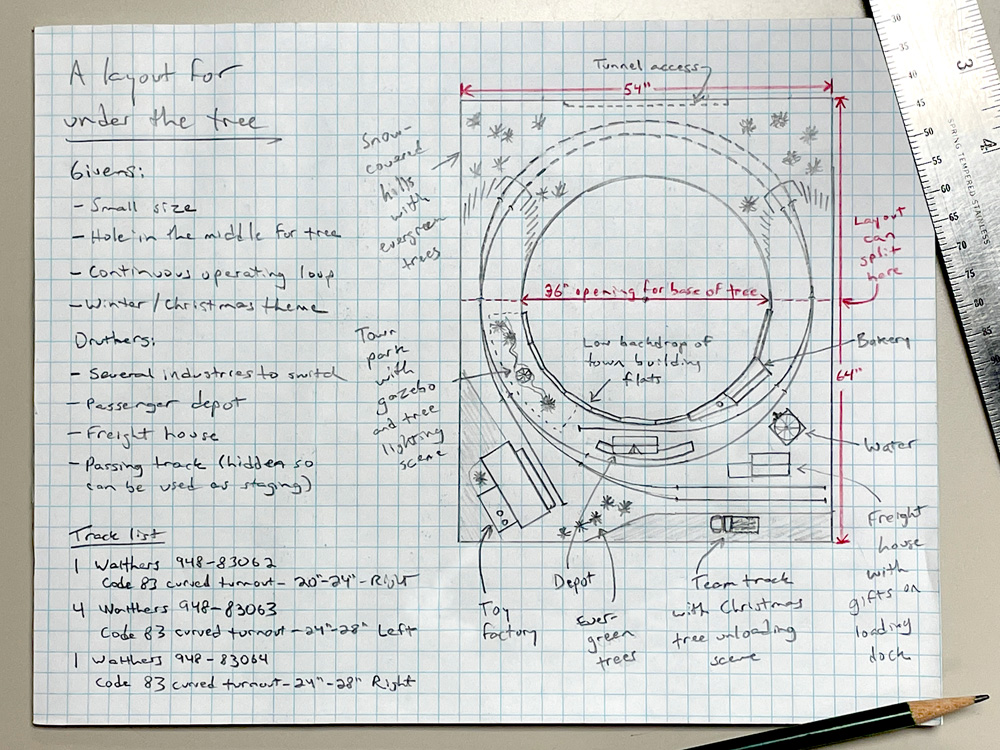 A layout for
under the tree
Givens:
- Small size
- Hole in the middle for tree
- Continuous operating loop
- Winter/Christmas theme
Druthers:
- Several industries to switch
- Passenger depot
- Freight house
- Passing track (hidden so
can be used as staging)
Track list
1 Walthers 948-83062
Code 83 curved turnout - 20"-24" - Right
4 Walthers 948-83063
Code 83 curved turnout - 24"-28" Left
1 Walthers 948-83064
Code 83 curved turnout - 24"-28" Right
Tunnel access
54"
Snow-
covered
hills
with
evergreen
trees
Layout
can
split
here
36" opening for base of tree
Town
park
with
gazebo
and tree
lighting
scene
Low backdrop of
town building
flats
Bakery
64"
Water
Freight
house
with
gifts on
loading
dock
Toy
factory
Depot
Ever-
green
trees
Team track
with Christmas
tree unloading
scene
30
35
40
45
50
55
60
65
70
75
80
85
3
4
SPRING TEMPERED STAINLESS